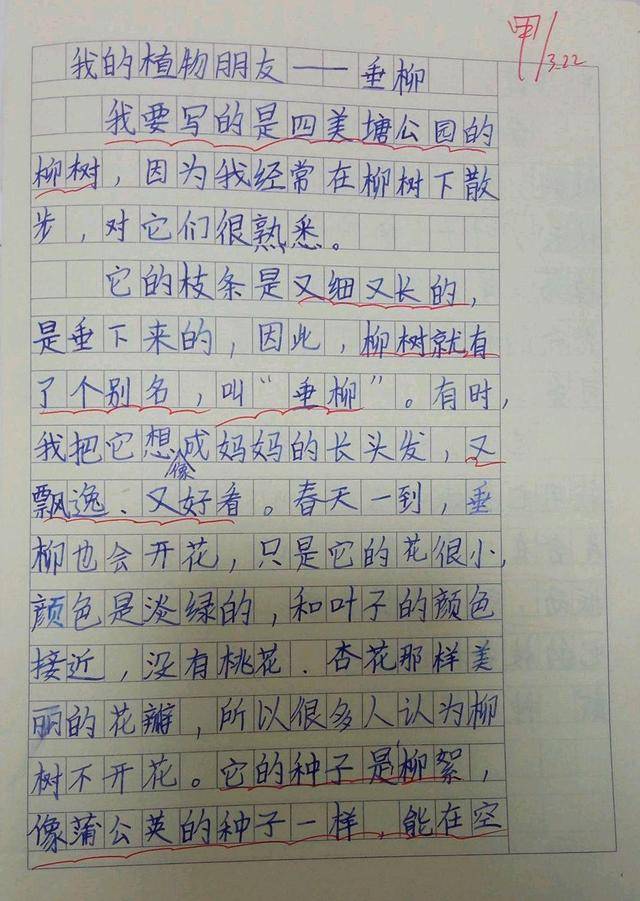 甲/3.22
我的植物朋友——垂柳
我要写的是四美塘公园的
柳树，因为我经常在柳树下散
步，对它们很熟悉。
它的枝条是又细又长的，
是垂下来的，因此，柳树就有
了个别名，叫“垂柳”。有时，
我把它想像成妈妈的长头发，又
飘逸、又好看。春天一到，垂
柳也会开花，只是它的花很小，
颜色是淡绿的，和叶子的颜色
接近，没有桃花、杏花那样美
丽的花瓣，所以很多人认为柳
树不开花。它的种子是柳絮，
像蒲公英的种子一样，能在空